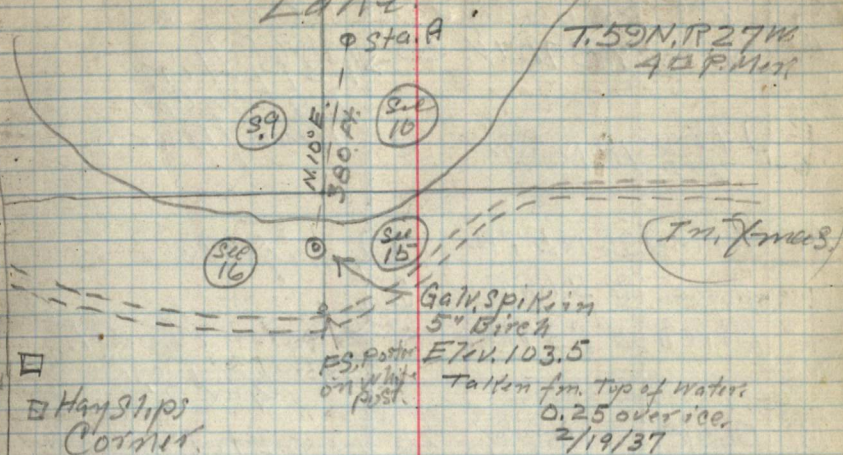 Lake
Sta. A
T.59N, R27W.
4 P. Mer
S.9
Sec
10
N.10°E.
380 ft.
Sec
16
Sec
15
Galv. Spike in
5" Birch
Elev. 103.5
Taken fm. Top of Water.
0.25 over ice.
2/19/37
F.S. Poster
on white
post.
Hayslips
Corner.